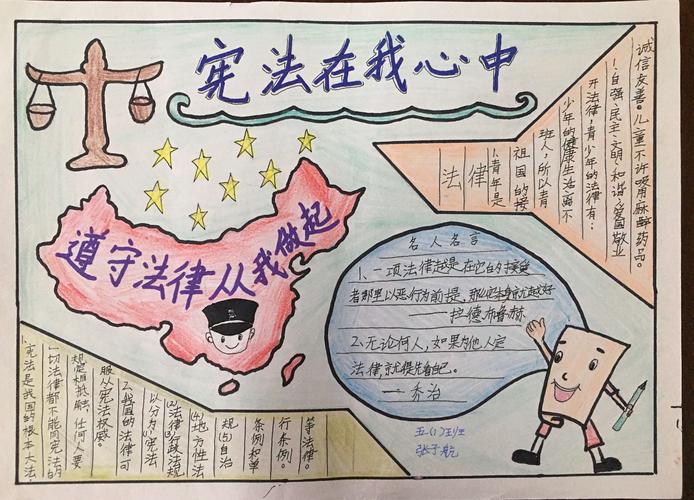 宪法在我心中
遵守法律从我做起
法律
1.青年是
祖国的接
班人,所以青
少年的健康生活离不
开法律,青少年的法律有:
1.自强、民主、文明、和谐、爱国敬业
诚信友善。儿童不许吸用麻醉药品。
名人名言
1、一项法律越是在它的接受
者那里以恶行为前提,那它本身就越好
——拉德布鲁赫
2、无论何人,如果为他人定
法律,就得先看自己。
——乔治
1.宪法是我国的根本大法
一切法律都不能同宪法的
规定相抵触,任何人要
服从宪法权威。
2.我国的法律可
以分为:宪法
(2)法律(3)行政法规
(4)地方性法
规(5)自治
条例和单
行条例。
等法律。
五(1)班
张子航